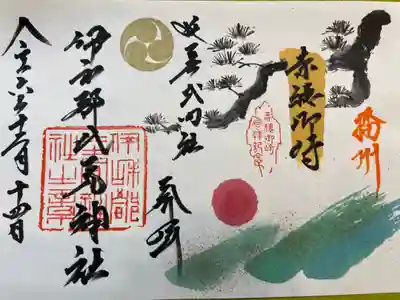 播州
赤穂御崎
延喜式内社
奉拝
伊和都比売神社
伊和都比売神社之章
令和六年十二月十四日